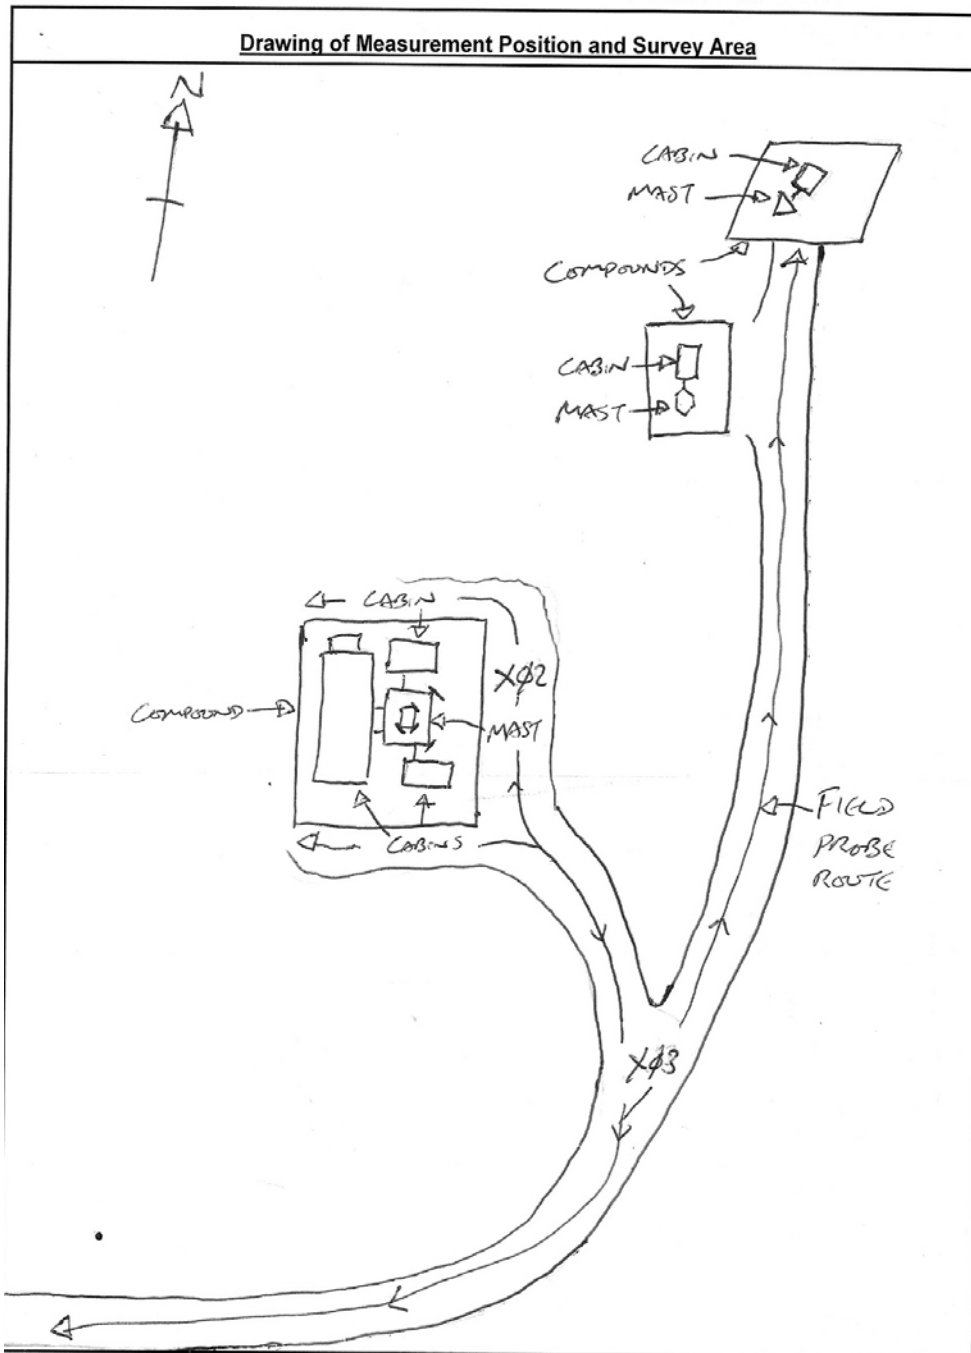 Drawing of Measurement Position and Survey Area
N
CABIN
MAST
COMPOUNDS
CABIN
MAST
CABIN
XØ2
COMPOUND
MAST
CABINS
FIELD
PROBE
ROUTE
XØ3